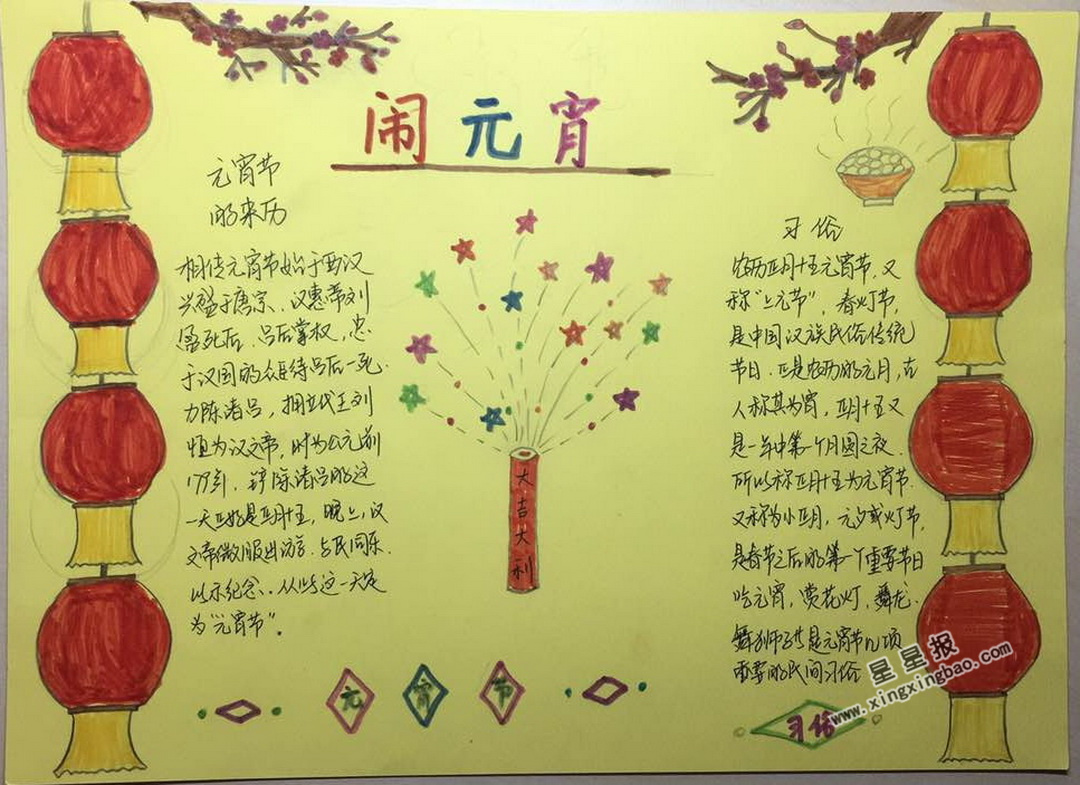 闹元宵
元宵节
的来历
相传元宵节始于西汉
兴盛于唐宗、汉惠帝刘
盈死后，吕后掌权，忠
于汉国的众臣待吕后一死
力陈诸吕，拥立代王刘
恒为汉文帝，时为公元前
179年，铲除诸吕的这
一天正好是正月十五，晚上，汉
文帝微服出游，与民同乐，
以示纪念。从此这一天定
为"元宵节"。
大吉大利
习俗
农历正月十五元宵节，又
称"上元节"，春灯节，
是中国汉族民俗传统
节日．正是农历的元月，古
人称其为宵，正月十五又
是一年中第一个月圆之夜
所以称正月十五为元宵节．
又称为小正月，元夕或灯节，
是春节之后的第一个重要节日
吃元宵，赏花灯，舞龙．
舞狮子共是元宵节几项
重要的民间习俗
元宵节
习俗
星星报
www.xingxingbao.com